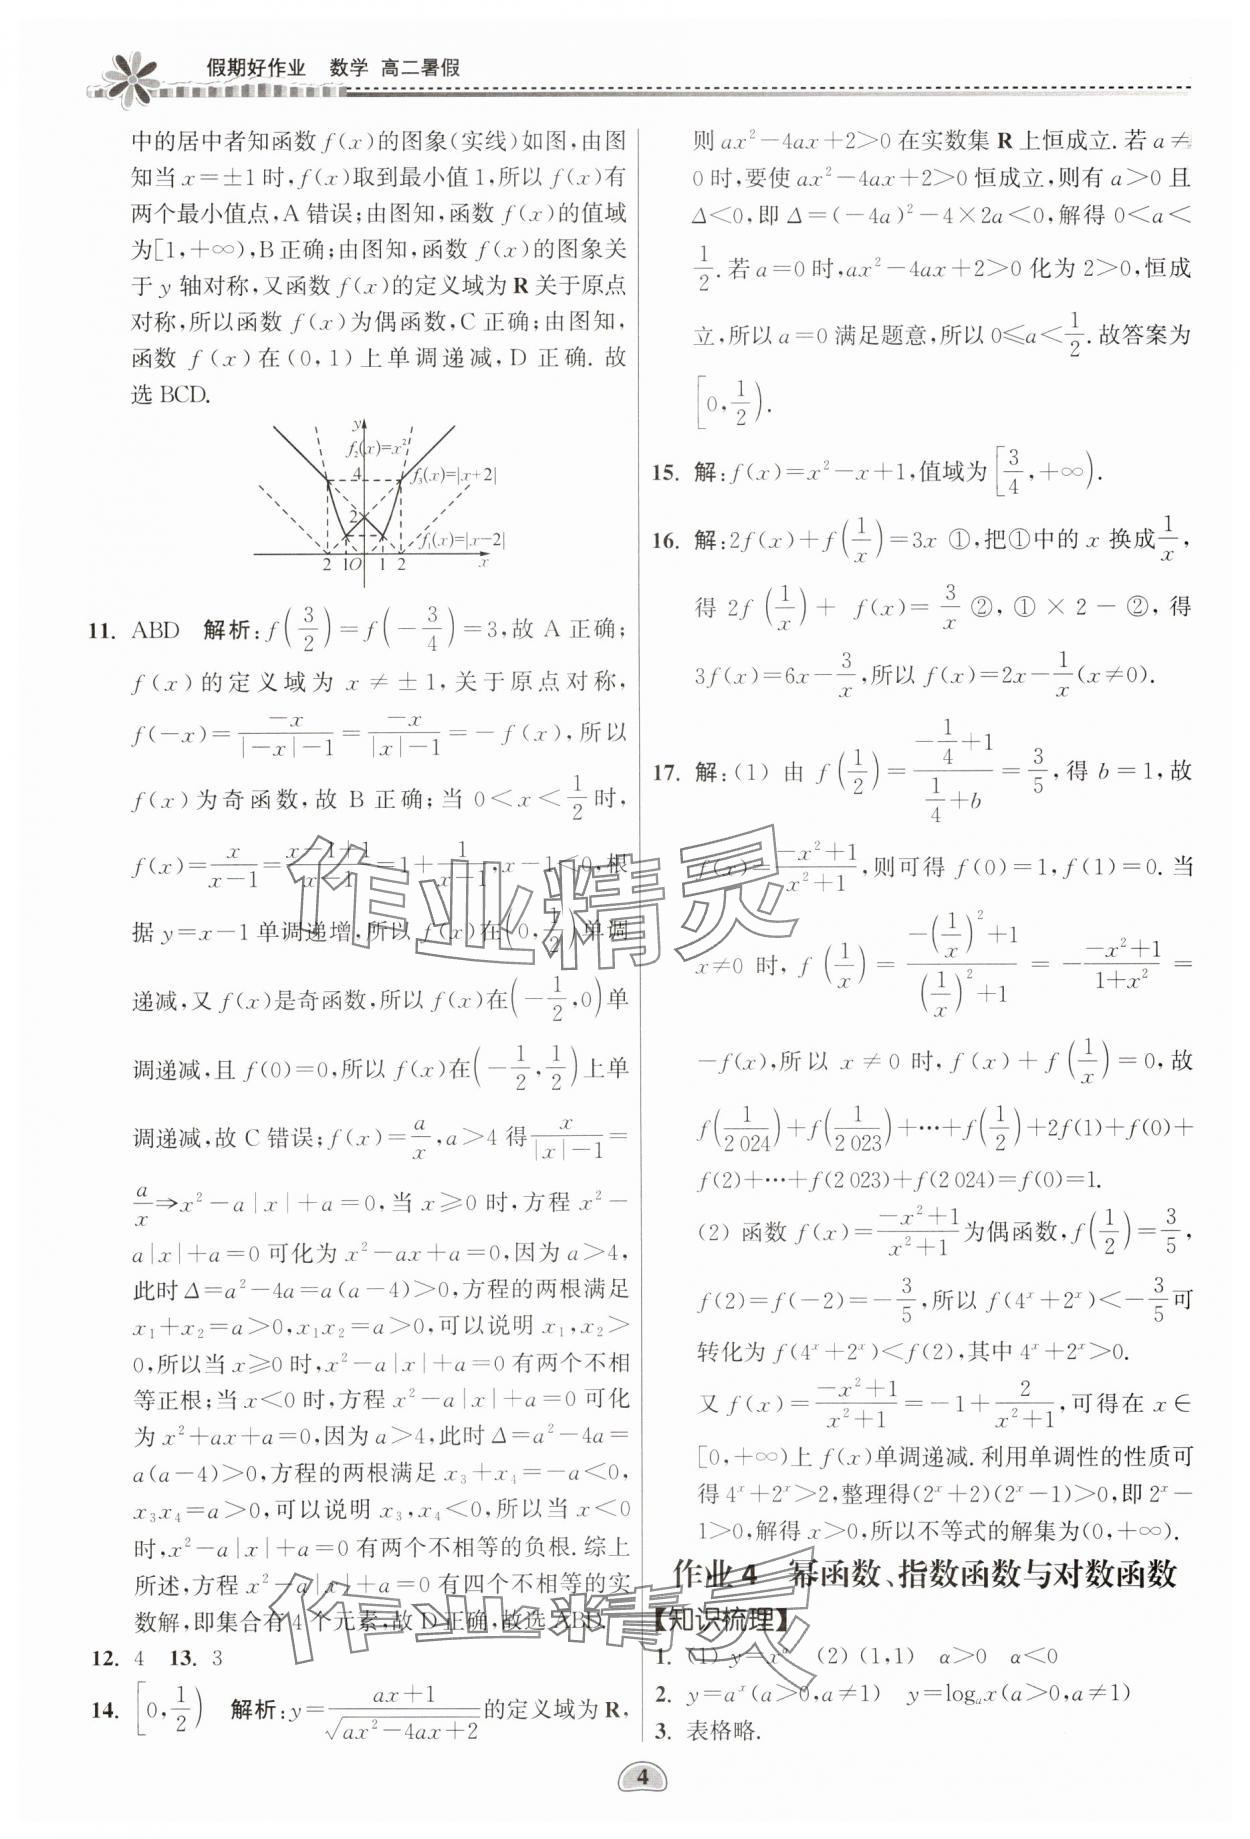 假期好作业 数学 高二暑假
中的居中者知函数 f(x)的图象(实线)如图,由图
知当 x=±1时,f(x)取到最小值1,所以 f(x)有
两个最小值点,A错误;由图知,函数 f(x)的值域
为[1,+∞),B正确;由图知,函数 f(x)的图象关
于 y 轴对称,又函数 f(x)的定义域为 R 关于原点
对称,所以函数 f(x)为偶函数,C正确;由图知,
函数 f(x)在(0,1)上单调递减,D正确.故
选BCD.
y
f₂(x)=x²
4 f₃(x)=|x+2|
2
f₁(x)=|x-2|
2 1O 1 2 x
11. ABD 解析:f(3/2)=f(-3/4)=3,故 A 正确;
f(x)的定义域为 x≠±1,关于原点对称,
f(-x)=-x/(|-x|-1)=-x/(|x|-1)=-f(x),所以
f(x)为奇函数,故 B 正确;当 0<x<1/2时,
f(x)=x/(x-1)=(x-1+1)/(x-1)=1+1/(x-1),x-1<0,根
据 y=x-1单调递增,所以 f(x)在(0,1/2)单调
递减,又 f(x)是奇函数,所以 f(x)在(-1/2,0)单
调递减,且 f(0)=0,所以 f(x)在(-1/2,1/2)上单
调递减,故 C 错误;f(x)=a/x,a>4 得 x/(|x|-1)=
a/x⇒x²-a|x|+a=0,当 x≥0 时,方程 x²-
a|x|+a=0 可化为 x²-ax+a=0,因为 a>4,
此时 Δ=a²-4a=a(a-4)>0,方程的两根满足
x₁+x₂=a>0,x₁x₂=a>0,可以说明 x₁,x₂>
0,所以当 x≥0 时,x²-a|x|+a=0 有两个不相
等正根;当 x<0 时,方程 x²-a|x|+a=0 可化
为 x²+ax+a=0,因为 a>4,此时 Δ=a²-4a=
a(a-4)>0,方程的两根满足 x₃+x₄=-a<0,
x₃x₄=a>0,可以说明 x₃,x₄<0,所以当 x<0
时,x²-a|x|+a=0 有两个不相等的负根.综上
所述,方程 x²-a|x|+a=0 有四个不相等的实
数解,即集合有 4 个元素,故 D 正确,故选 ABD.
12. 4 13. 3
14. [0,1/2) 解析:y=(ax+1)/√(ax²-4ax+2)的定义域为 R,
则 ax²-4ax+2>0 在实数集 R 上恒成立.若 a≠
0时,要使 ax²-4ax+2>0 恒成立,则有 a>0 且
Δ<0,即 Δ=(-4a)²-4×2a<0,解得 0<a<
1/2.若 a=0 时,ax²-4ax+2>0 化为 2>0,恒成
立,所以 a=0 满足题意,所以 0≤a<1/2.故答案为
[0,1/2).
15. 解:f(x)=x²-x+1,值域为[3/4,+∞).
16. 解:2f(x)+f(1/x)=3x ①,把①中的 x 换成1/x,
得 2f(1/x)+ f(x)=3/x ②,①×2-②,得
3f(x)=6x-3/x,所以 f(x)=2x-1/x(x≠0).
17. 解:(1) 由 f(1/2)=(-1/4+1)/(1/4+b)=3/5,得 b=1,故
f(x)=(-x²+1)/(x²+1),则可得 f(0)=1,f(1)=0.当
x≠0 时,f(1/x)=(-(1/x)²+1)/((1/x)²+1)=-(-x²+1)/(1+x²)=
-f(x),所以 x≠0 时,f(x)+f(1/x)=0,故
f(1/2 024)+f(1/2 023)+…+f(1/2)+2f(1)+f(0)+
f(2)+…+f(2 023)+f(2 024)=f(0)=1.
(2) 函数 f(x)=(-x²+1)/(x²+1)为偶函数,f(1/2)=3/5,
f(2)=f(-2)=-3/5,所以 f(4ˣ+2ˣ)<-3/5可
转化为 f(4ˣ+2ˣ)<f(2),其中 4ˣ+2ˣ>0.
又 f(x)=(-x²+1)/(x²+1)=-1+2/(x²+1),可得在 x∈
[0,+∞)上 f(x)单调递减.利用单调性的性质可
得 4ˣ+2ˣ>2,整理得(2ˣ+2)(2ˣ-1)>0,即 2ˣ-
1>0,解得 x>0,所以不等式的解集为(0,+∞).
作业 4 幂函数、指数函数与对数函数
【知识梳理】
1. (1) y=xᵅ (2) (1,1) α>0 α<0
2. y=aˣ(a>0,a≠1) y=logₐx(a>0,a≠1)
3. 表格略.
4
作业精灵
作业精灵